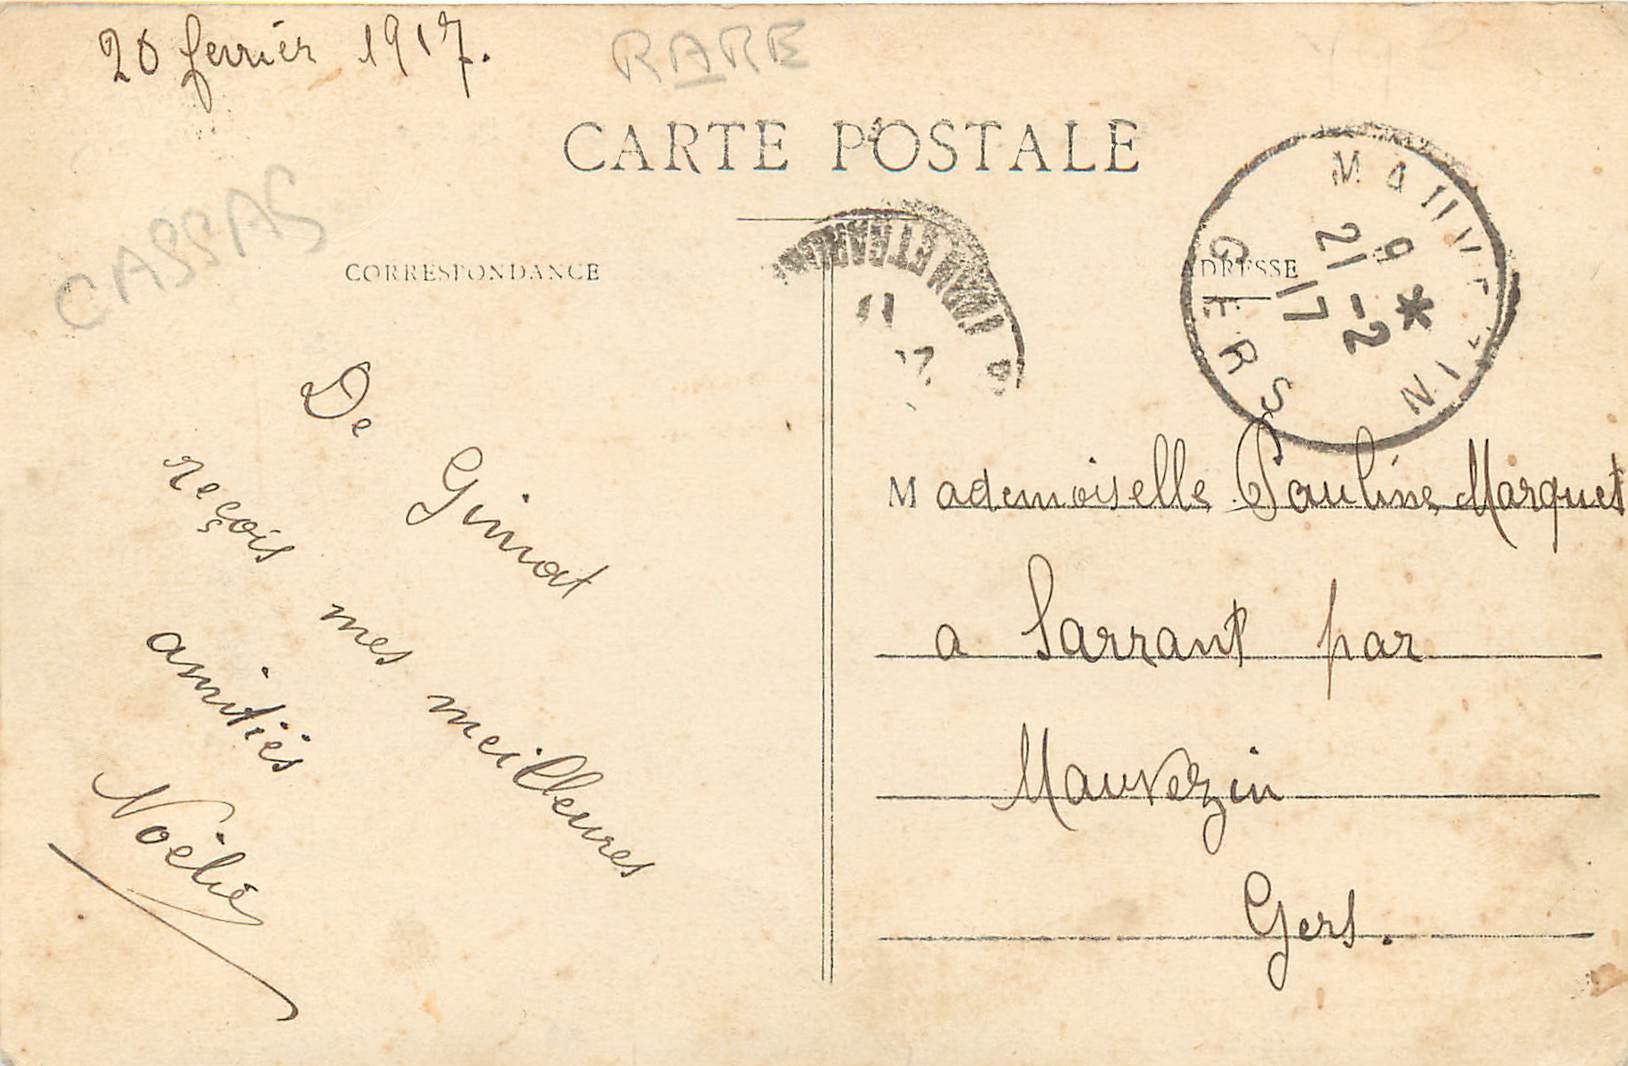 20 ferrier 1917.
RARE
CARTE POSTALE
CASSAS
CORRESPONDANCE
De Gimat
reçois mes meilleures
amitiés
Noëlie
GERS
9 *
21 -2
17
Mademoiselle Pauline Marquet
a Sarrant par
Mauvezin
Gers.